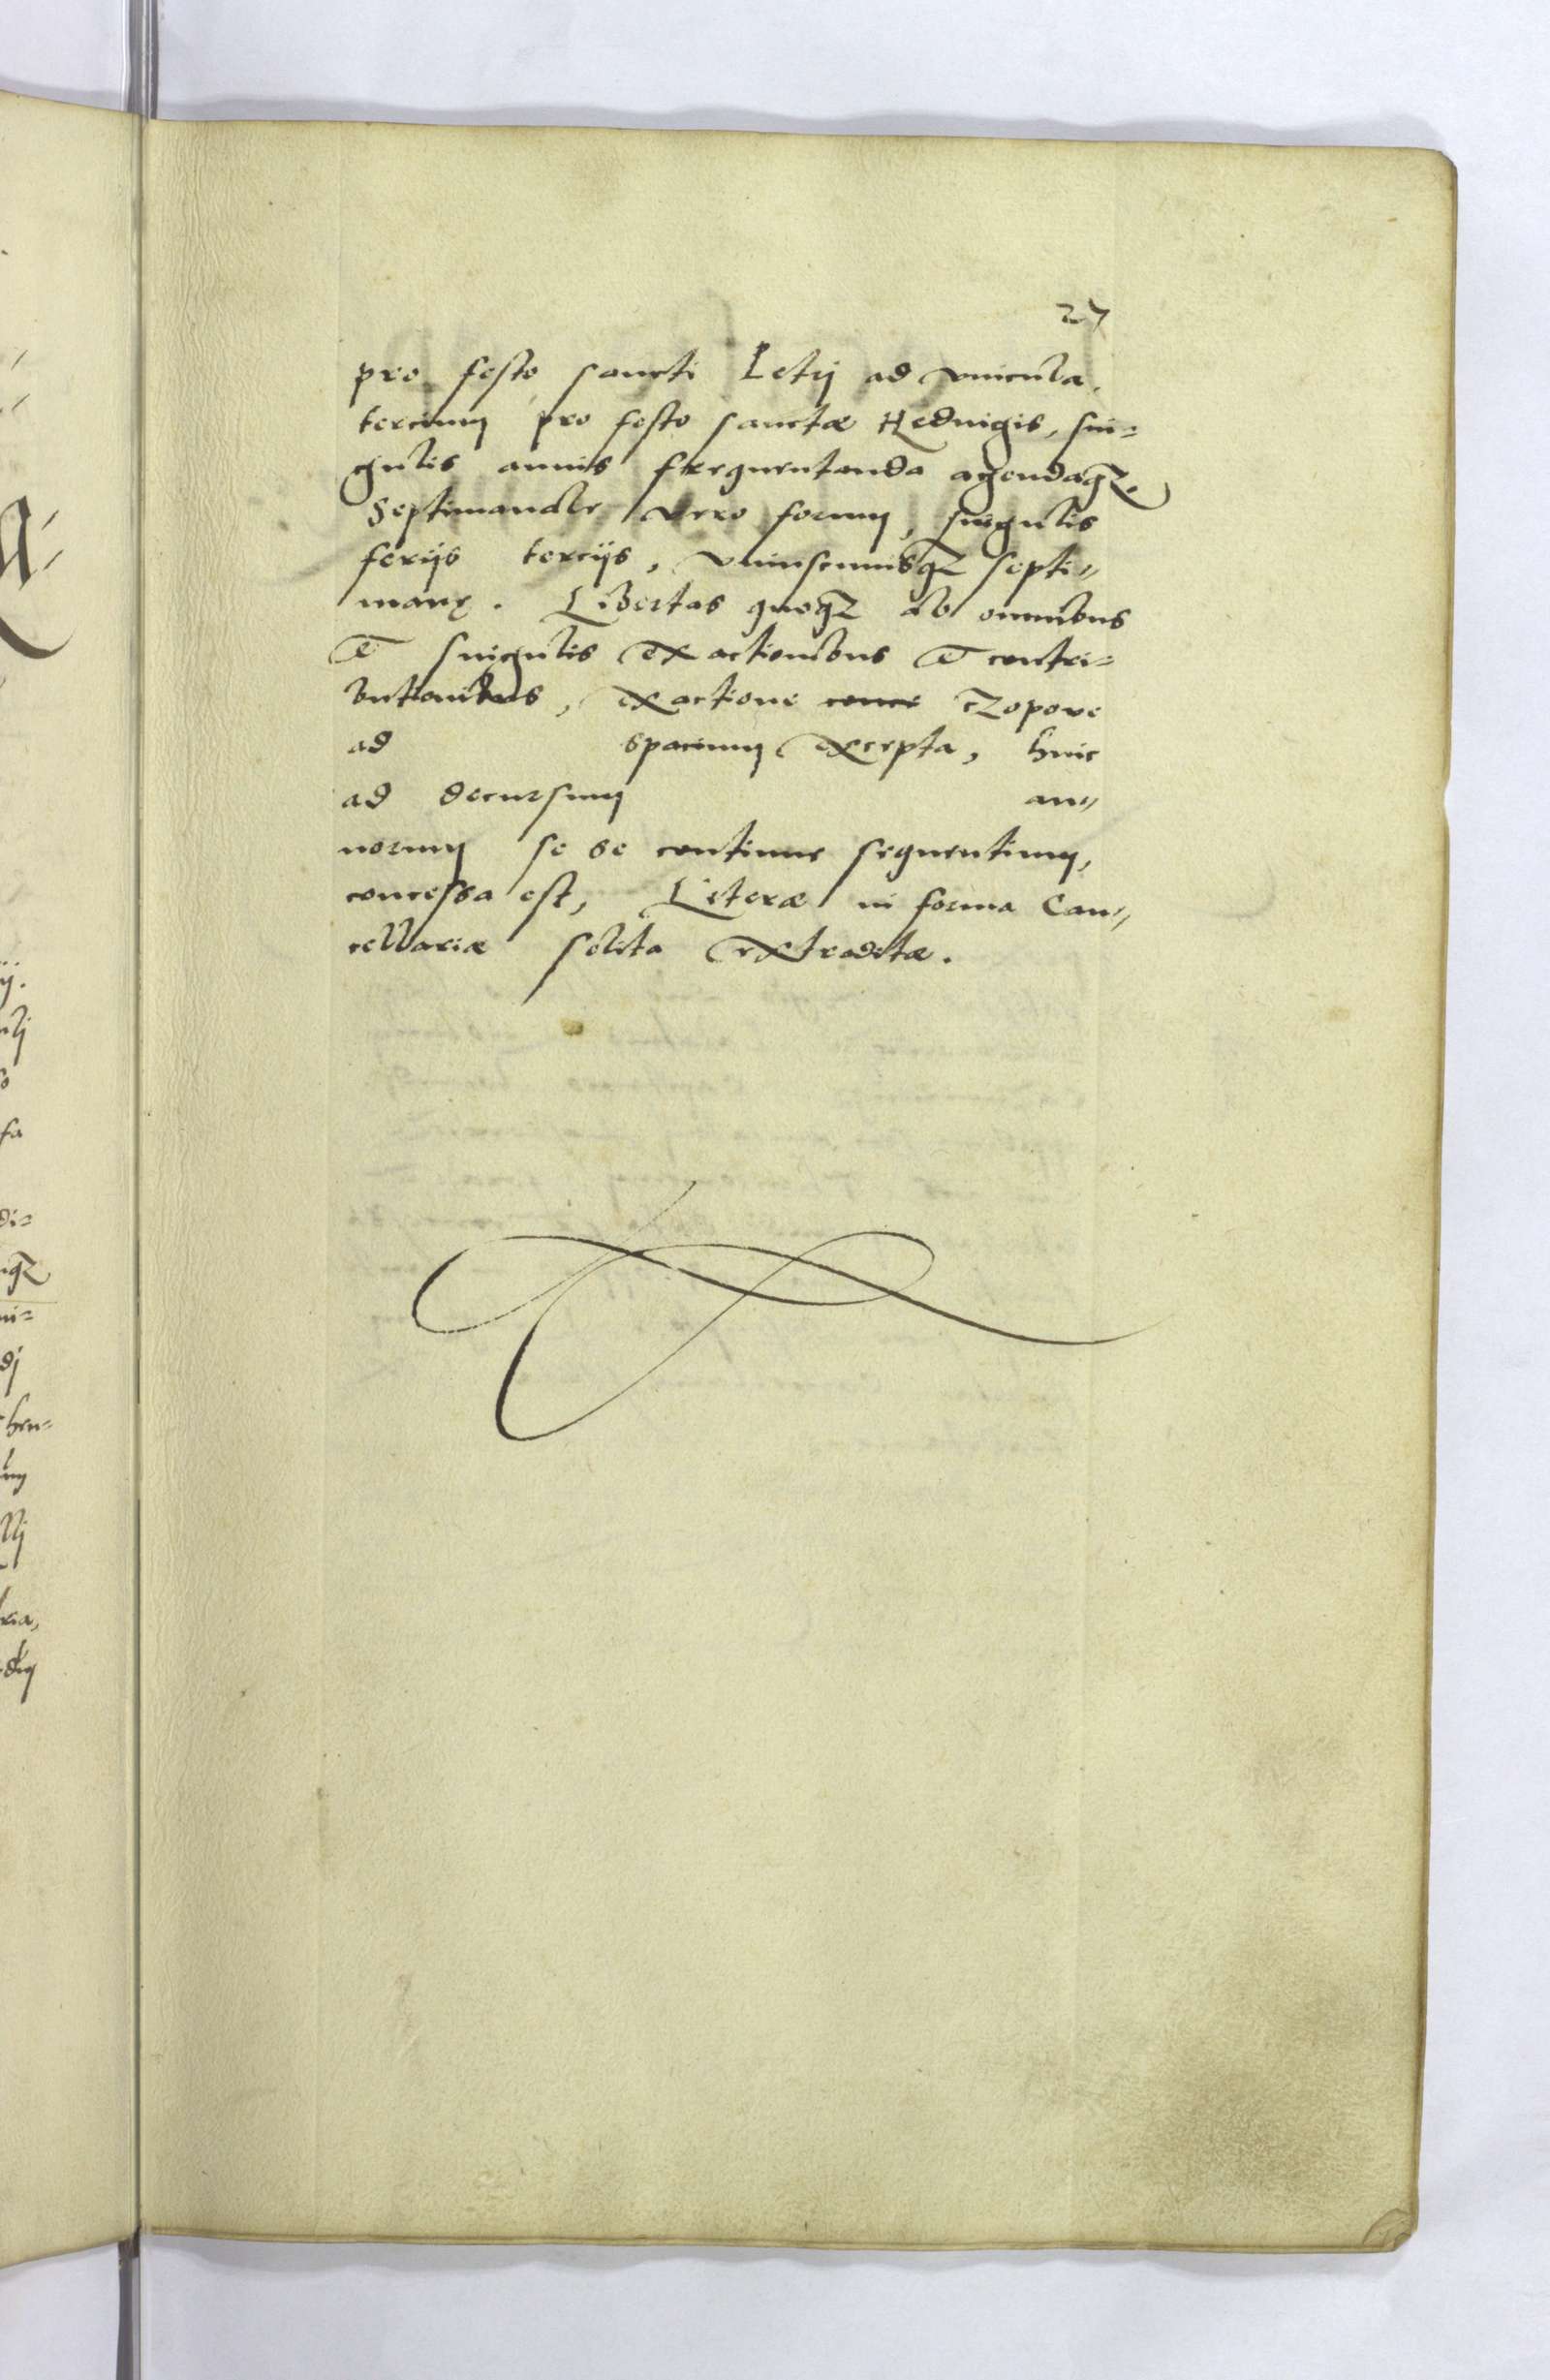 27
pro festo sancti Petrj ad vincula.
tercium pro festo sanctæ Heduigis, sin=
gulis annis frequentanda agendaqꝫ.
Septimanale vero forum, singulis
ferijs tercijs, vniuscuiusqꝫ septi=
manę. Libertas quoqꝫ ab omnibus
et singulis exactionibus et contri=
butionibus, exactione conce czopowe
ad spacium excepta, huic
ad decursum an=
norum se se continue sequentium,
concessa est, Literæ in forma Can=
cellariæ solita extraditæ.